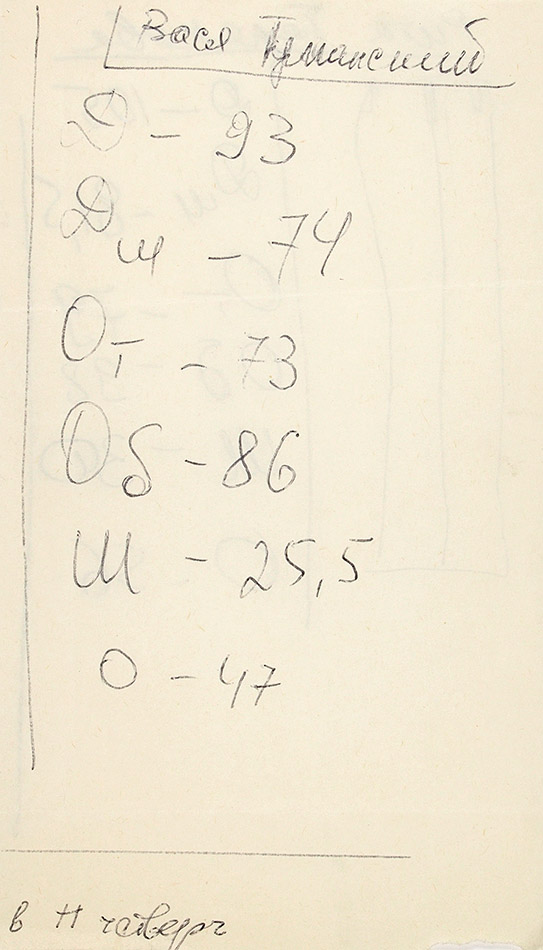 Вася Туманский
Д - 93
Дш - 74
От - 73
Об - 86
Ш - 25,5
О - 47
в Н четверг